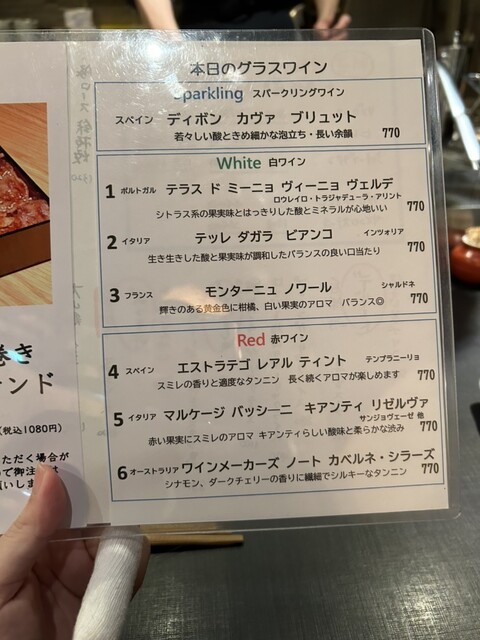 本日のグラスワイン
Sparkling スパークリングワイン
スペイン ディボン カヴァ ブリュット
若々しい酸ときめ細かな泡立ち・長い余韻 770
White 白ワイン
1 ポルトガル テラス ド ミーニョ ヴィーニョ ヴェルデ
ロウレイロ・トラジャデューラ・アリント
シトラス系の果実味とはっきりした酸とミネラルが心地いい 770
2 イタリア テッレ ダガラ ビアンコ インツォリア
生き生きした酸と果実味が調和したバランスの良い口当たり 770
3 フランス モンターニュ ノワール シャルドネ
輝きのある黄金色に柑橘、白い果実のアロマ バランス◎ 770
Red 赤ワイン
4 スペイン エストラテゴ レアル ティント テンプラニーリョ
スミレの香りと適度なタンニン 長く続くアロマが楽しめます 770
5 イタリア マルケージ バッシーニ キアンティ リゼルヴァ
サンジョヴェーゼ 他
赤い果実にスミレのアロマ キアンティらしい酸味と柔らかな渋み 770
6 オーストラリア ワインメーカーズ ノート カベルネ・シラーズ
シナモン、ダークチェリーの香りに繊細でシルキーなタンニン 770
巻き
ンド
(税込1080円)
ただく場合が